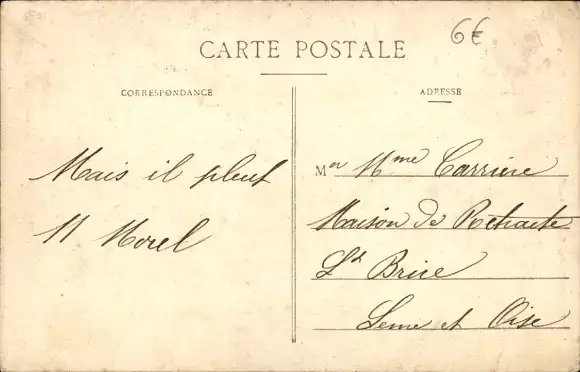 6€
CARTE POSTALE
CORRESPONDANCE
ADRESSE
Mais il pleut
H Morel
Mr Mme Carrière
Maison de Retraite
St Brice
Seine et Oise